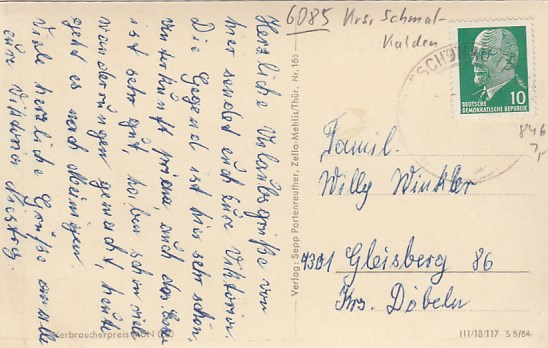 Herzliche Urlaubsgrüße von
hier sendet euch eure Viktoria.
Die Gegend ist hier sehr schön,
Unterkunft prima, auch das Essen
ist sehr gut, haben schon viele
Wanderungen gemacht, heute
geht es nach Meiningen.
Viele herzliche Grüße an alle
eure Viktoria
Verlag: Sepp Portenreuther, Zella-Mehlis/Thür. Nr. 165
6085 Krs. Schmal-
kalden
DEUTSCHE
DEMOKRATISCHE REPUBLIK
10
846
7,-
Famil.
Willy Winkler
4301 Gleisberg 86
Krs. Döbeln
Verbraucherpreis MDN
III/18/117 S 5/64